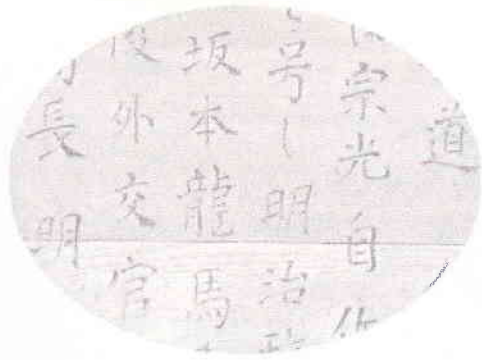 道
宗光自作
号し明治政
坂本龍馬
段外交官
長明